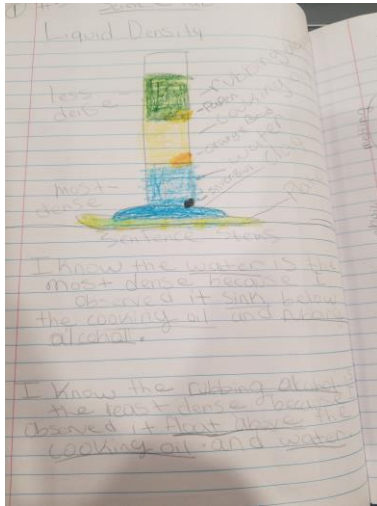 Liquid Density
less
dense
rubbing
Paper
cooking oil
water
clay
most
dense
Sentence Stems
I know the water is the
most dense because I
observed it sink below
the cooking oil and rubbing
alcohol.
I know the rubbing alcohol is
the least dense because
observed it float above the
cooking oil and water